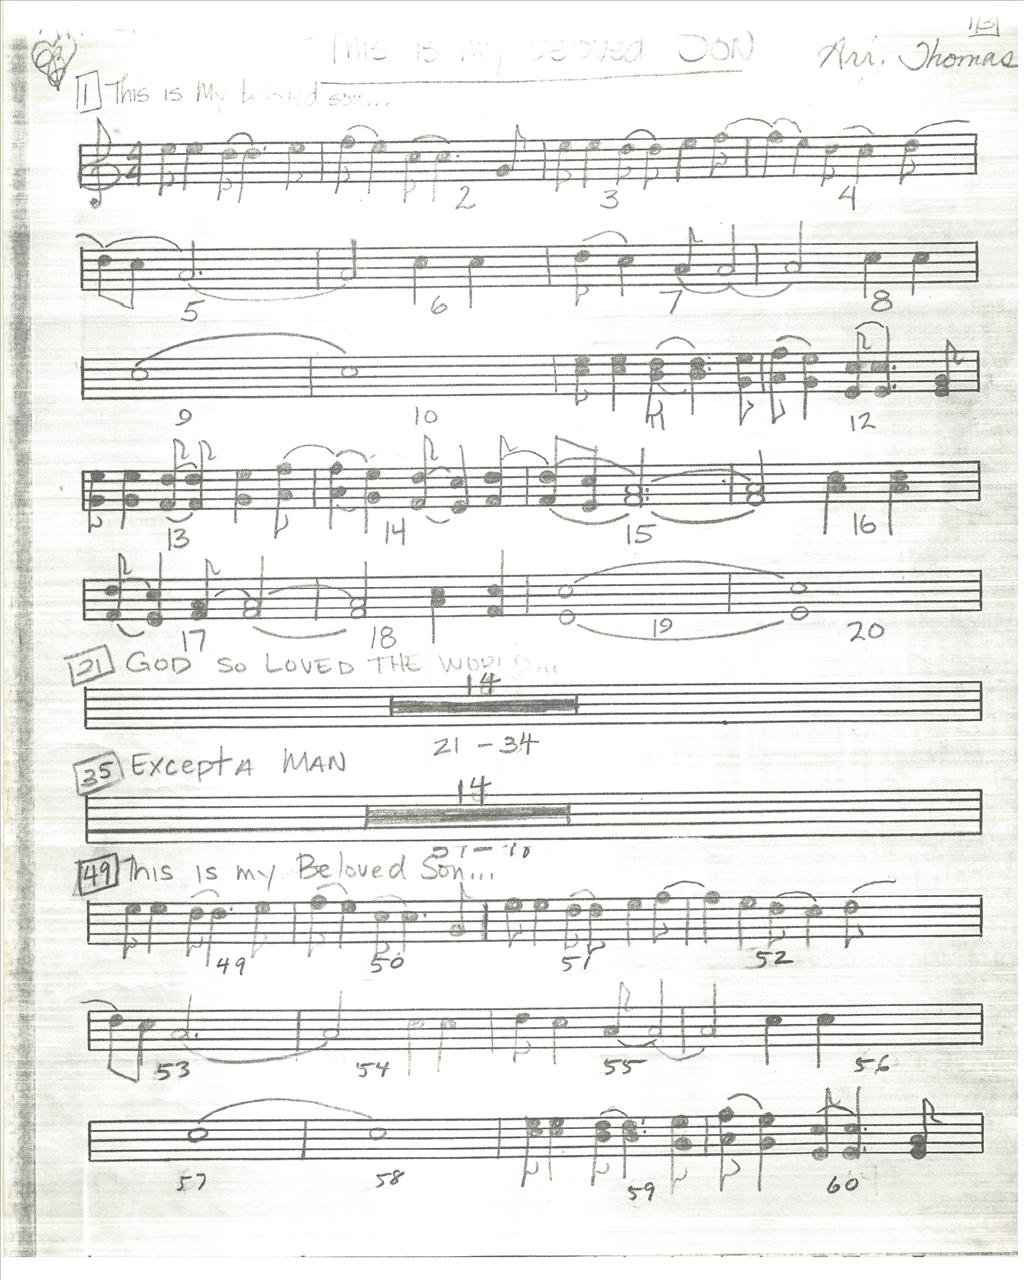 This is my Beloved SON
Arr. Thomas
1 This is My beloved son...
4 4
2 3 4
5 6 7 8
9 10 11 12
13 14 15 16
17 18 19 20
21 GOD SO LOVED THE WORLD...
14
21 - 34
35 Except A MAN
14
49 This is my Beloved Son...
49 50 51 52
53 54 55 56
57 58 59 60